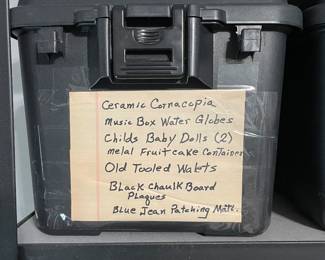 Ceramic Cornacopia
Music Box Water Globes
Childs Baby Dolls (2)
metal Fruitcake Container
Old Tooled Walets
Black Chaulk Board
Plaques
Blue Jean Patching Mate...